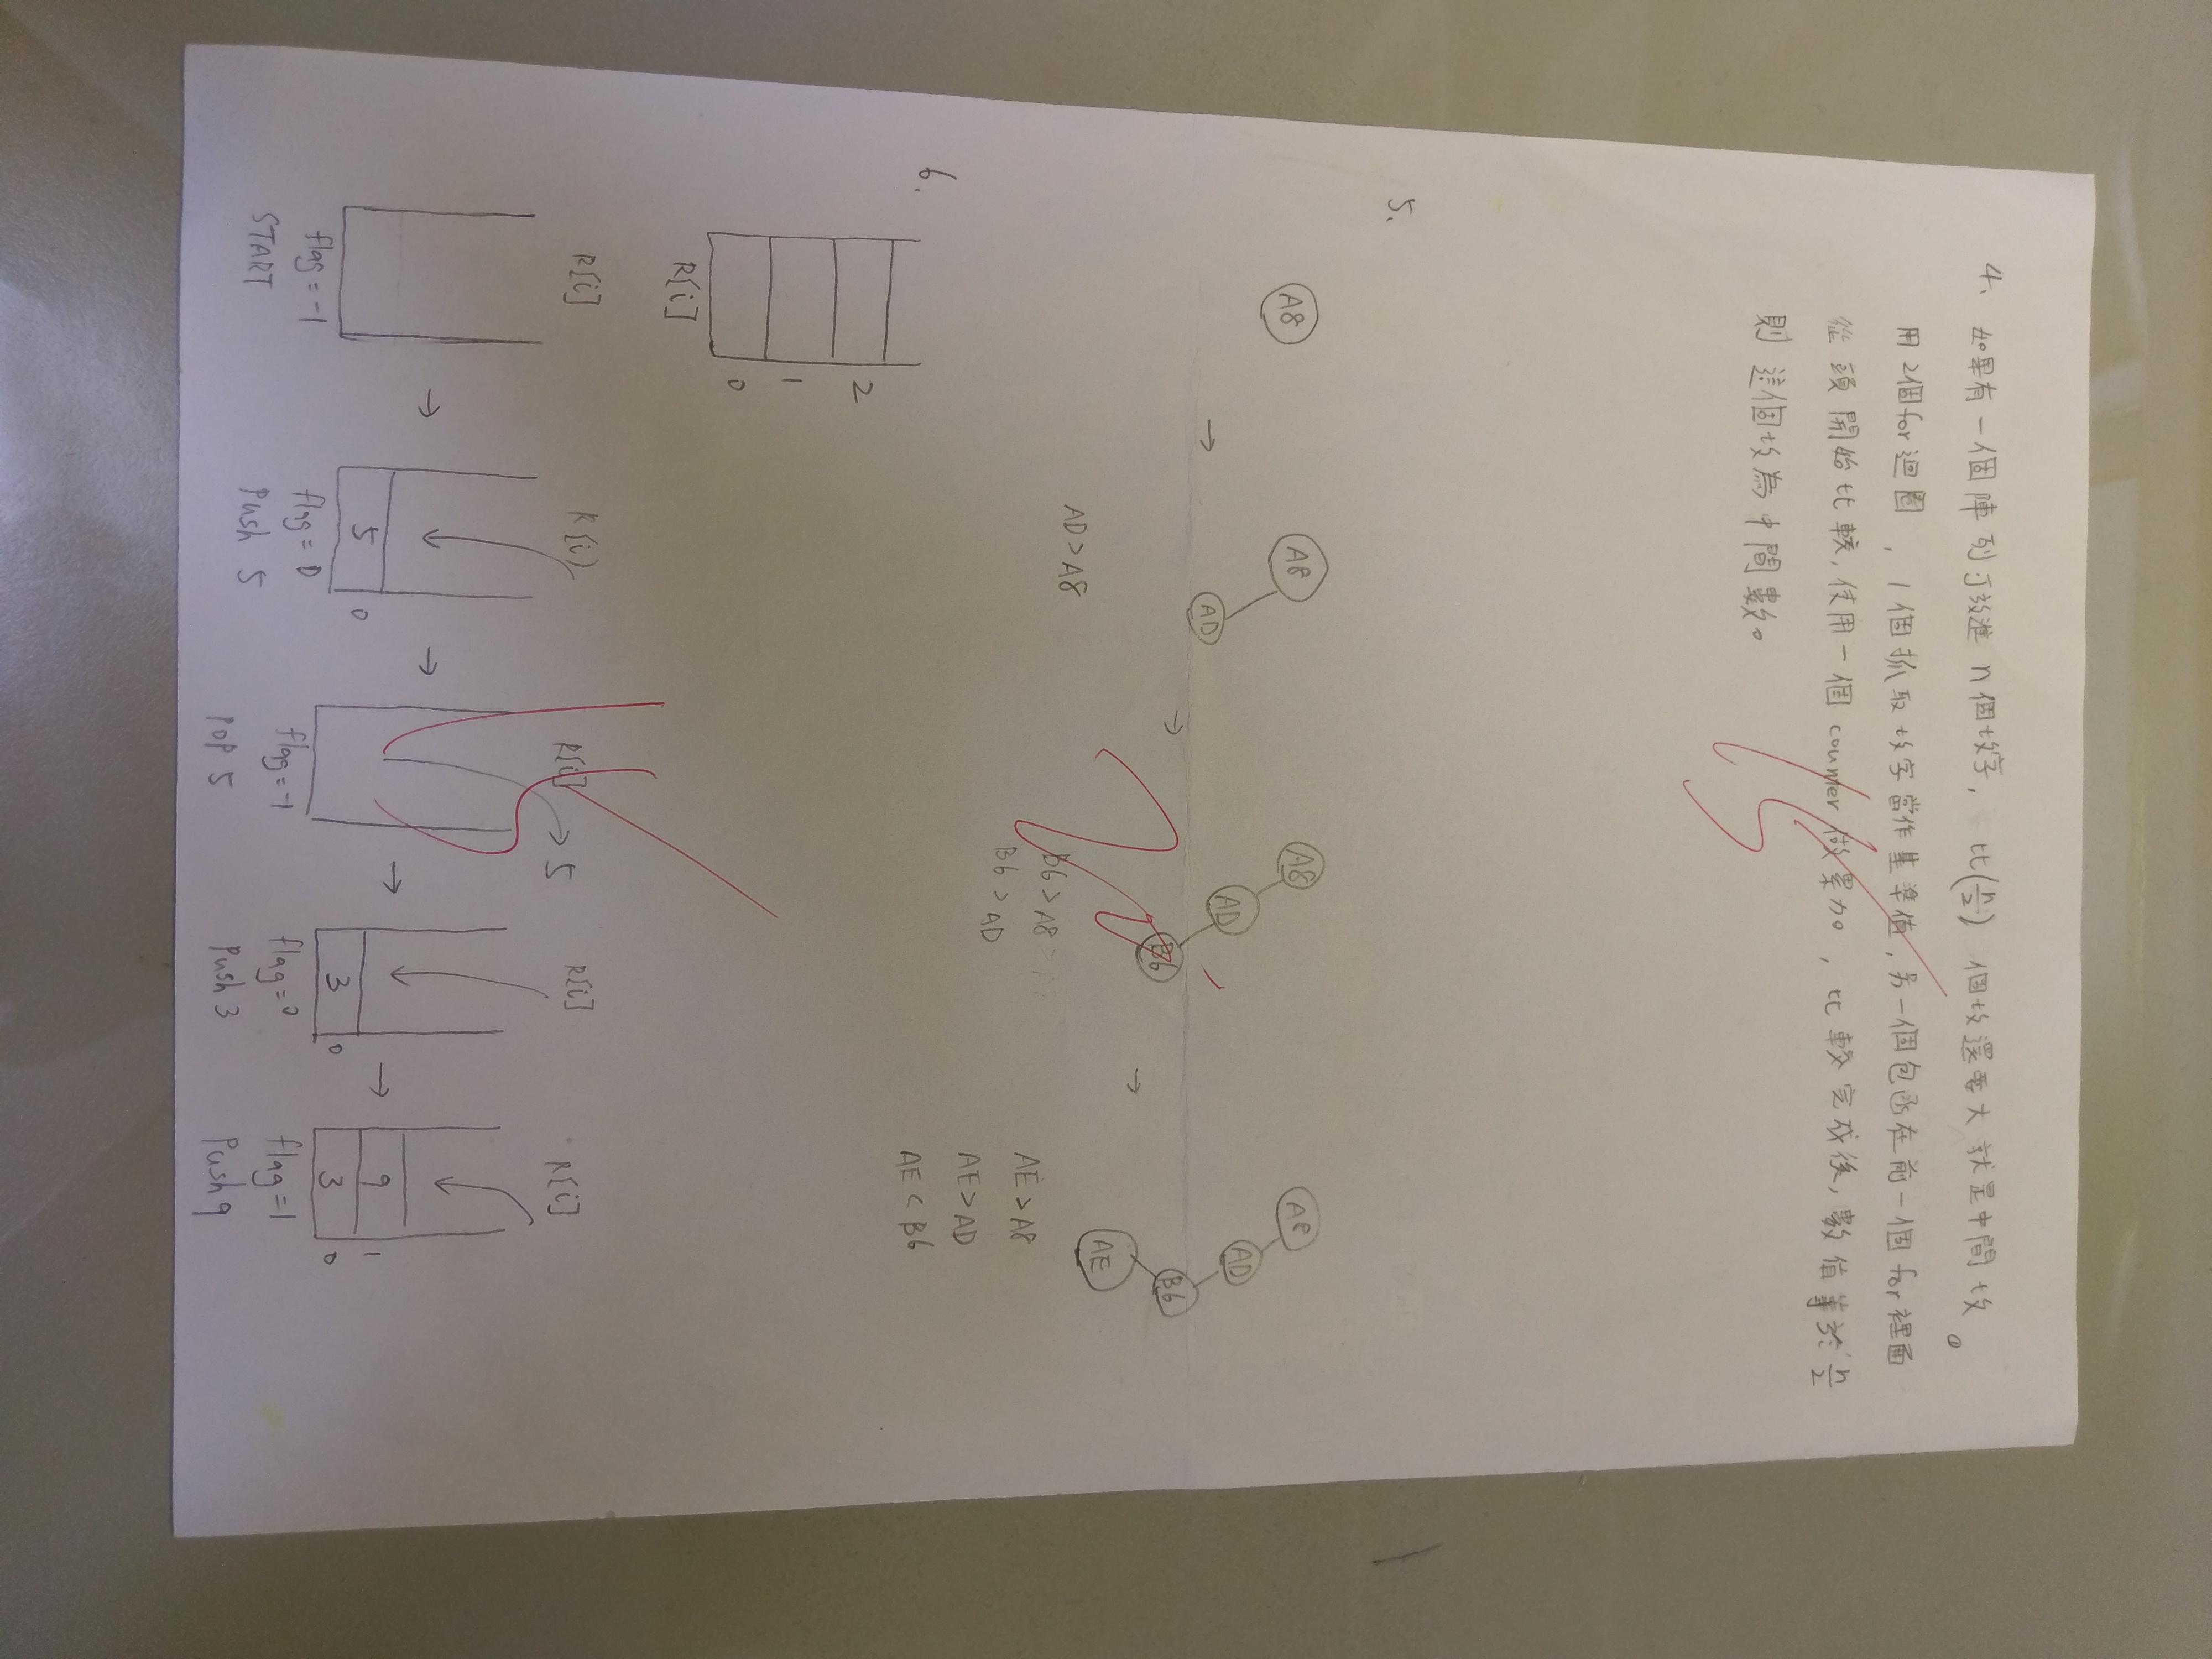 4. 如果有一個陣列J放進n個数字, 比(n/2)個数還要大就是中間数。
用2個for迴圈, 1個抓取数字當作基準值, 另一個包函在前一個for裡面
從頭開始比較, 使用一個counter做累加。, 比較完成後, 數值等於n/2
則這個数為中間數。
15
5.
A8
→
A8
AD
AD>A8
→
A8
AD
B6
B6>A8
B6>AD
→
A8
AD
B6
AE
AE>A8
AE>AD
AE<B6
20
6.
2
1
0
R[i]
R[i]
flag=-1
START
→
R[i]
5 0
flag=0
Push 5
→
R[i] → 5
flag=-1
POP 5
→
R[i]
3 0
flag=0
Push 3
→
R[i]
9 1
3 0
flag=1
Push 9
15